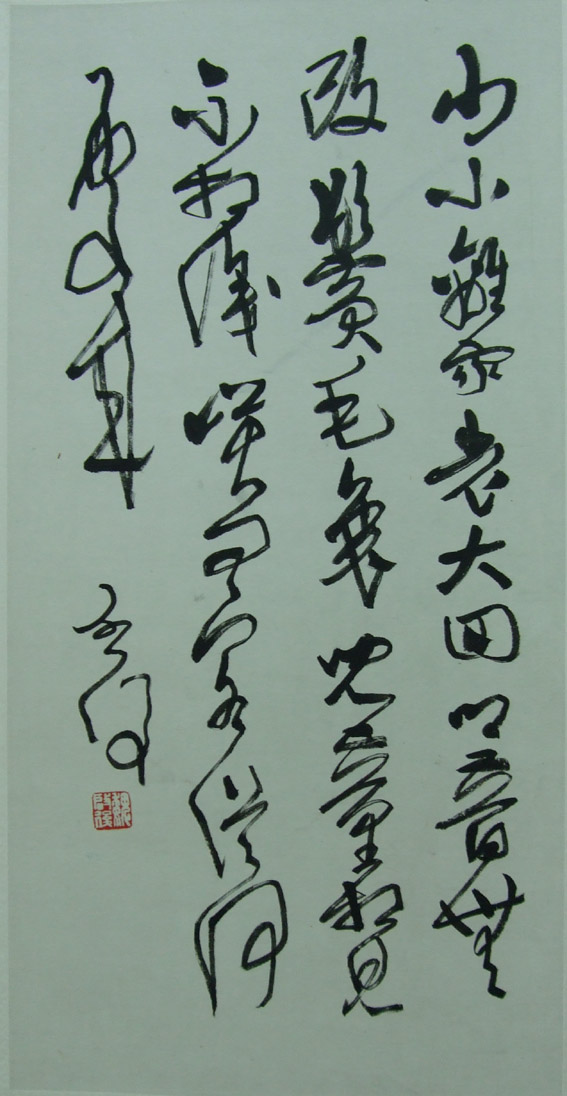 少小離家老大回鄉音無
改鬢毛衰兒童相見
不相識笑問客從何
處來
啟後
魏啟後